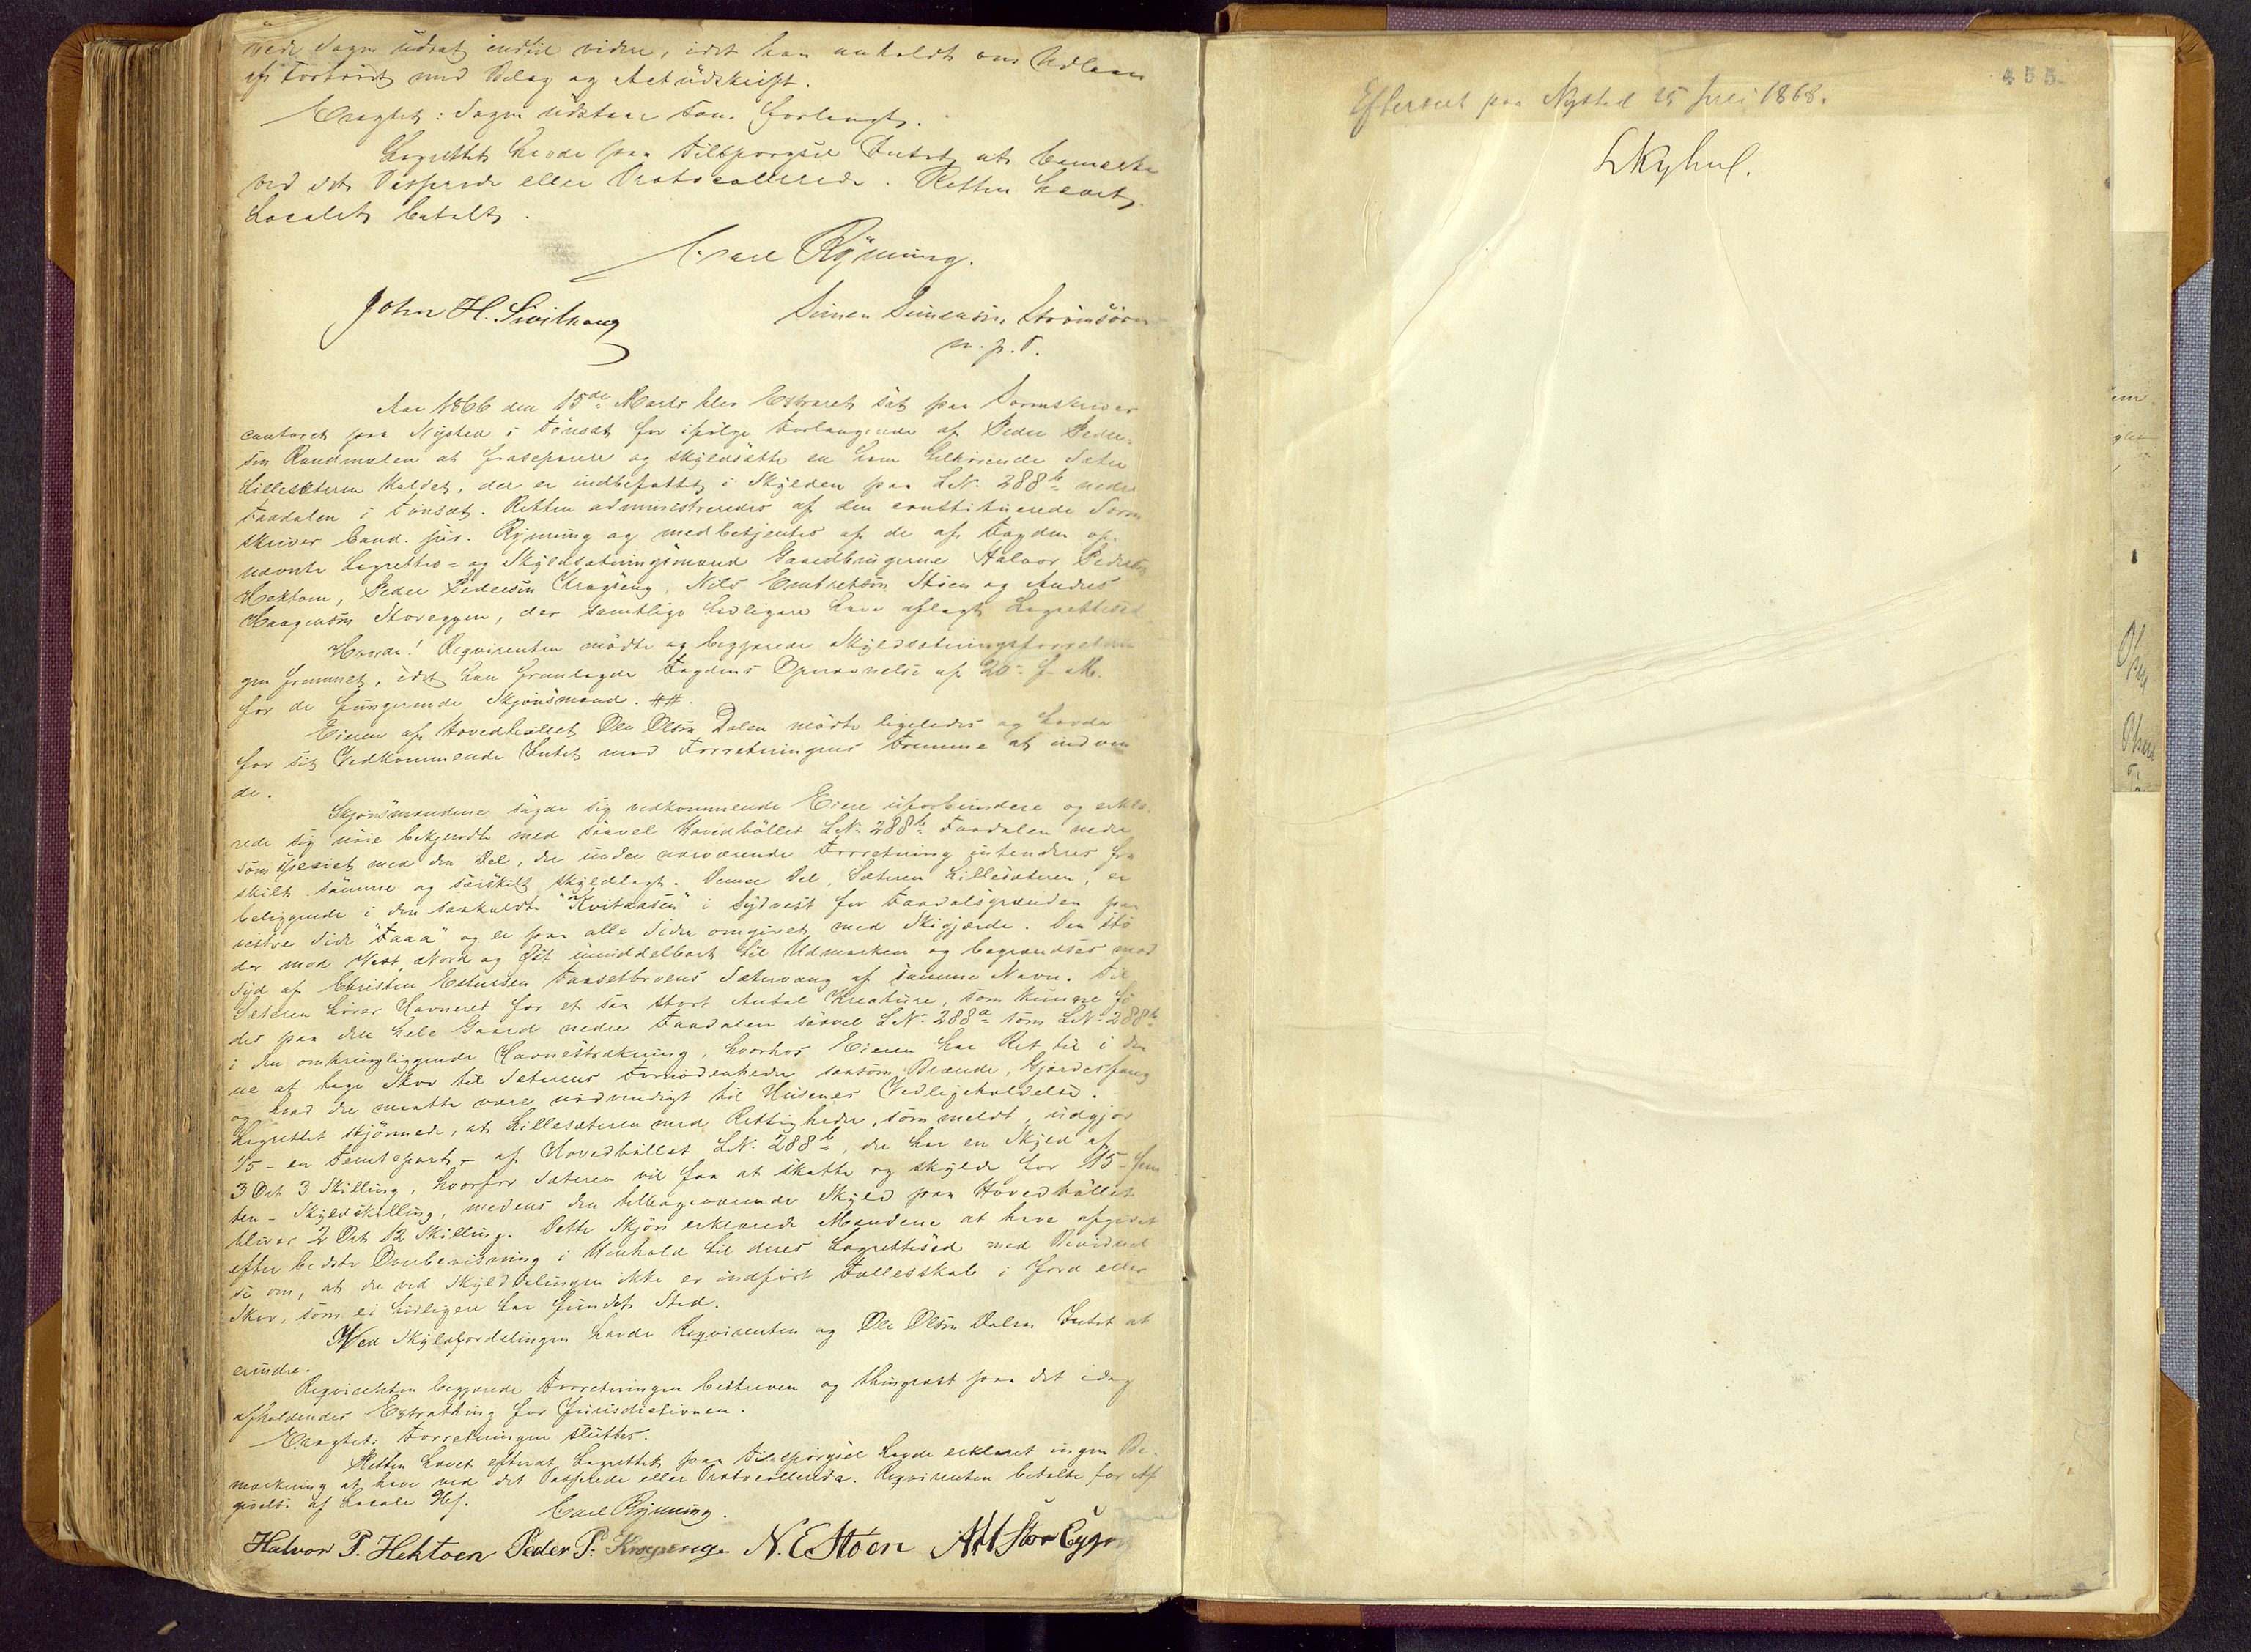 Sagen udsat indtil videre, idet han anholdt om Udlaan
af Forhøret med Bilag og Actudskrift.
Eragtet: Sagen udstaar som forlangt.
Lagrettet havde paa Tilspørgsel Intet at bemærke
ved det Passerede eller Protocollerede. Retten hævet.
Localet betalt.
Carl Rÿnning.
John H. Sivilhaug
Simen Simensen Strömsöien
m. p. P.
Aar 1866 den 15de Marts blev Extraret sat paa Sorenskriver
contoret paa Nysted i Tönset for ifölge Forlangende af Peder Peder-
sen Raudmælen at fraseparere og skyldsætte en ham tilhörende Sæter
Lillesæteren kaldet, der er indbefattet i Skylden paa LN. 288b nedre
Faadalen i Tönset. Retten administreredes af den constituerede Soren
skriver Cand. jur. Rynning og medbetjentes af de af Fogden op-
nævnte Lagrettes- og Skyldsætningsmænd Gaardbrugerne Halvor Pedersen
Hektoen, Peder Pedersen Kragseng, Nils Embretsen Stöen og Anders
Haagensen Storeggen, der samtlige tidligere have aflagt Lagrettesed
Hvorda! Reqvirenten mödte og begjærede Skyldsætningsforretnin
gen fremmet, idet han fremlagde Fogdens Opnævnelse af 20. f. M.
for de fungerende Skjönsmænd. ##.
Eieren af Hovedböllet Ole Olsen Dalen mödte ligeledes og havde
for sit Vedkommende Intet mod Forretningens Fremme at indven
de.
Skjönsmændene sagde sig vedkommende Eiere uforbundere og erklæ-
rede sig nöie bekjendte med saavel Hovedböllet LN. 288b Faadalen nedre
som specielt med den Del, der under nærværende Forretning intenderes fra
skilt samme og særskilt skyldlagt. Denne Del, Sæteren Lillesæteren, er
beliggende i den saakaldte "Kvitaasen" i Sydvest for Faadalsgrænden paa
vestre Side "Faaa" og er paa alle Sider omgivet med Skigjærde. Den stö
der mod Vest, Nord og Öst umiddelbart til Udmarken og begrændses mod
Syd af Christen Estensen Faasetbroens Sætervang af samme Navn. Til
Sæteren hører Havneret for et saa stort Antal Kreature, som kunne fö
des paa den hele Gaard nedre Faadalen saavel LN. 288a som LN. 288b
i den omkringliggende Havnestrækning, hvorhos Eieren har Ret til i den
ne at tage Skov til Sæterens Fornödenheder saasom Brænde, Gjærdesfang
og hvad der maatte være nödvendigt til Husenes Vedligeholdelse.
Lagrettet skjönnede, at Lillesæteren med Rettigheder, som meldt, udgjör
1/5 - en Femtepart - af Hovedböllet LN. 288b, der har en Skyld af
3 Ort 3 Skilling, hvorfor Sæteren vil faa at skatte og skylde for 15 - fem
ten - Skyldskilling, medens den tilbageværende Skyld paa Hovedböllet
bliver 2 Ort 12 Skilling. Dette Skjön erklærede Mændene at have afgivet
efter bedste Overbevisning i Henhold til deres Lagrettesed med Bevidsthed
se om, at der ved Skylddelingen ikke er indfört Fællesskab i Jord eller
Skov, som ei tidligere har fundet Sted.
Ved Skyldfordelingen havde Reqvirenten og Ole Olsen Dalen Intet at
erindre.
Reqvirenten begjærede Forretningen beskreven og thinglæst paa det idag
afholdendes Extrathing for Jurisdictionen.
Eragtet: Forretningen sluttes.
Retten hævet efterat Lagrettet paa Tilspörgsel havde erklæret ingen Be-
mærkning at have ved det Passerede eller Protocollerede. Reqvirenten betalte for Af
givelse af Locale
Carl Rÿnning.
Halvor P. Hektoen Peder P. Kragseng N. E Stöen A H Stor Eggen
Efterseet paa Nysted 25 Juli 1868.
455